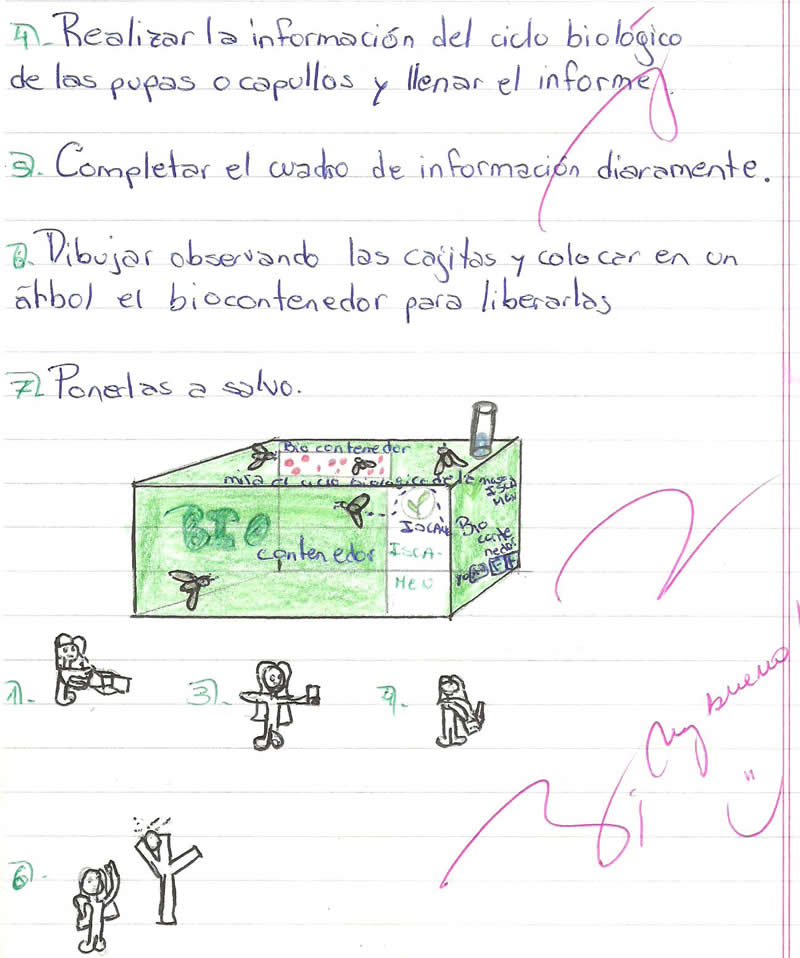 4). Realizar la información del ciclo biológico
de las pupas o capullos y llenar el informe.
5). Completar el cuadro de información diaramente.
6). Dibujar observando las cajitas y colocar en un
árbol el biocontenedor para liberarlas
7). Ponerlas a salvo.
Bio contenedor
mira el ciclo biológico de la
BIO
contenedor
ISCAMEN
ISCA-
MEN
ISCA
MEN
Bio
conte
nedor
1).
3).
4).
6).
Muy bueno!